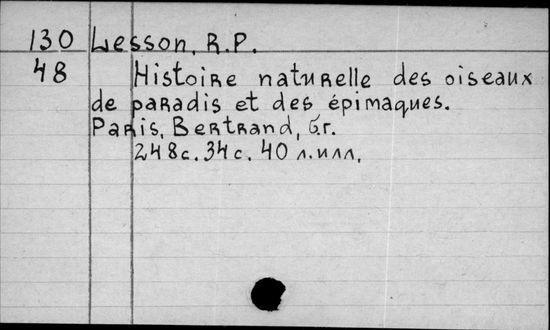 130 Lesson, R.P.
48 Histoire naturelle des oiseaux
de paradis et des épimaques.
Paris, Bertrand, б.г.
248с. 34с. 40 л.илл.